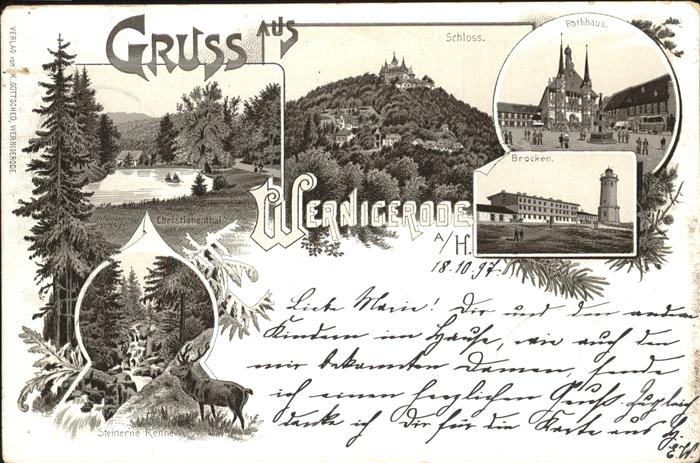 GRUSS AUS
WERNIGERODE
A/H.
Schloss.
Rathhaus.
Brocken.
Christianenthal.
Steinerne Renne
VERLAG von R. GOTTSCHED, WERNIGERODE
18.10.97.
Liebe Marie! Dir und den andern
Kindern im Hause, wie auch den
mir bekannten Damen, sende
ich einen herzlichen Gruß. Zugleich
danke ich Dir für die Karte aus
E.W.